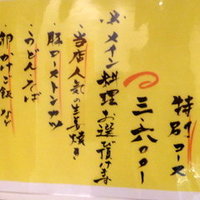 特名コース
三・六〇〇ー
※メイン料理お選び頂けます
・当店人気の生姜焼き
・豚ローストンカツ
・うどん、そば
・卵かけご飯など